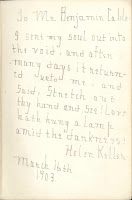 To Mr. Benjamin Cable
I sent my soul out into
the void, and after
many days it return-
ed unto me, and
said, Stretch out
thy hand and see! Love
hath hung a lamp
amid the darkness!
Helen Keller.
March 16th
1903.